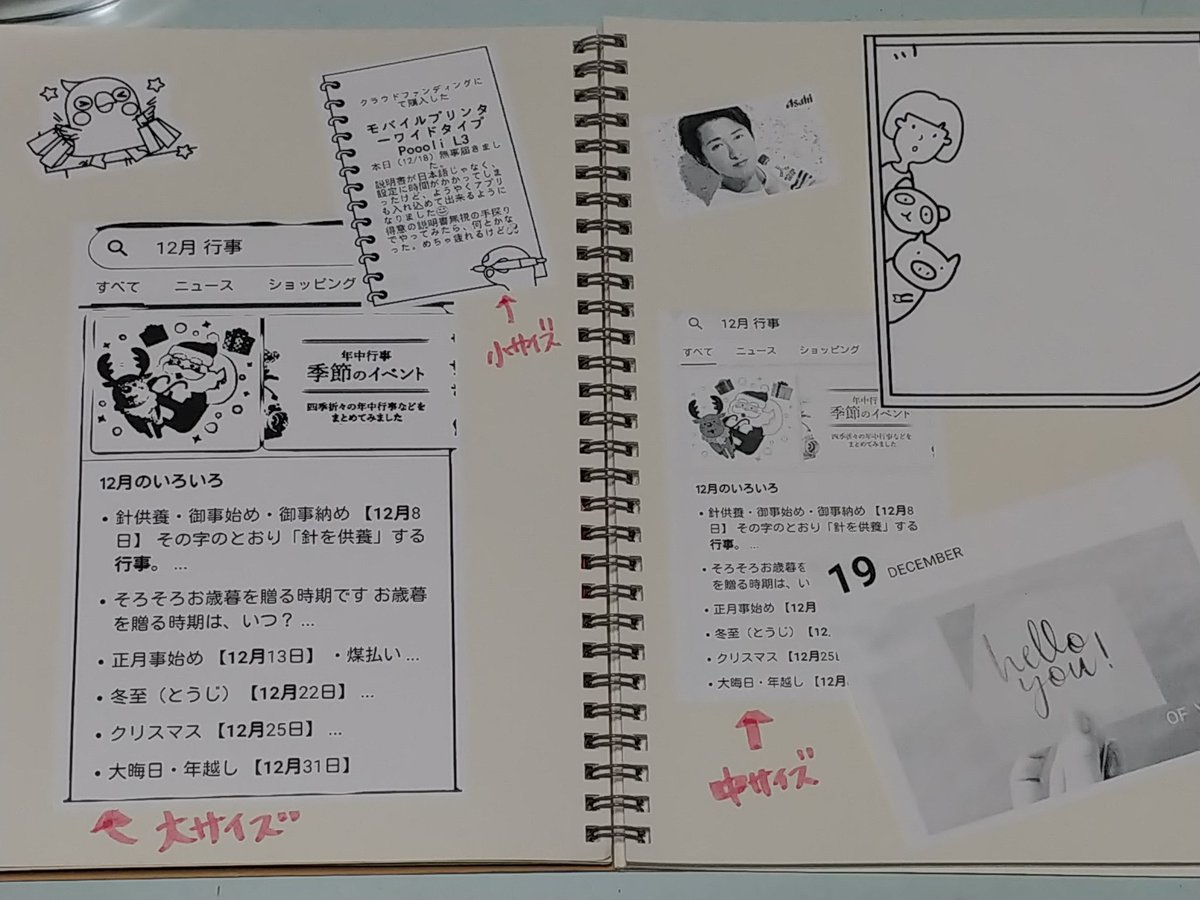 クラウドファンディングに
て購入した
モバイルプリンタ
ーワイドタイプ
Poooli L3
本日(12/18)無事届きまし
た。
説明書が日本語じゃなく、
設定に時間がかかってしま
ったけど、ようやくアプリ
も入れ込めて出来るように
なりました😊
得意の説明書無視の手探り
でやってみたら、何とかな
った。めちゃ疲れるけど
↑
小サイズ
12月 行事
すべて ニュース ショッピング
年中行事
季節のイベント
四季折々の年中行事などを
まとめてみました
12月のいろいろ
• 針供養・御事始め・御事納め 【12月8
日】 その字のとおり「針を供養」する
行事。 ...
• そろそろお歳暮を贈る時期です お歳暮
を贈る時期は、いつ? ...
• 正月事始め 【12月13日】 ・煤払い ...
• 冬至(とうじ) 【12月22日】 ...
• クリスマス 【12月25日】 ...
• 大晦日・年越し 【12月31日】
大サイズ
asahi
12月 行事
すべて ニュース ショッピング
年中行
季節のイベント
四季折々の年中行事などを
まとめてみました
12月のいろいろ
• 針供養・御事始め・御事納め 【12月8
日】 その字のとおり「針を供養」する
行事。 ...
• そろそろお歳暮を
を贈る時期は、い
• 正月事始め 【12月
• 冬至(とうじ) 【12.
• クリスマス 【12月25
• 大晦日・年越し 【12月
↑
中サイズ
19 DECEMBER
hello
you!
OF